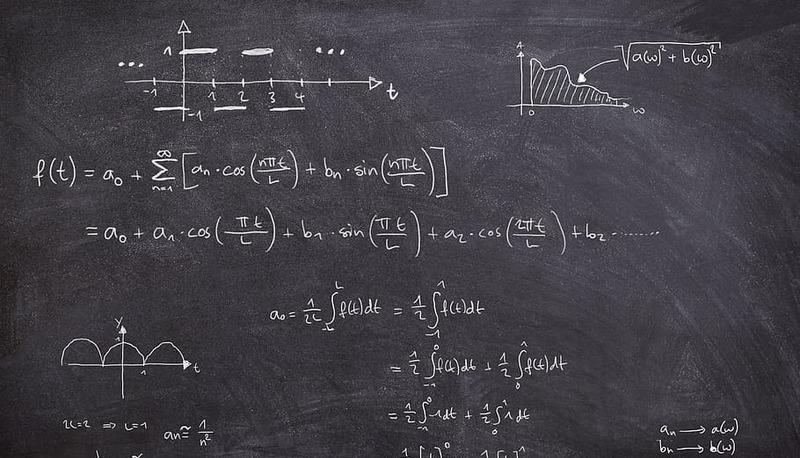 1
... ...
-1 1 2 3 4 t
-1
A
√(a(ω)² + b(ω)²)
0 ω
f(t) = a₀ + ∑ₙ₌₁^∞ [aₙ · cos(nπt/L) + bₙ · sin(nπt/L)]
= a₀ + a₁ · cos(πt/L) + b₁ · sin(πt/L) + a₂ · cos(2πt/L) + b₂ ........
a₀ = 1/2L ∫₋L^L f(t)dt = 1/2 ∫₋₁^1 f(t)dt
= 1/2 ∫₋₁^0 f(t)dt + 1/2 ∫₀^1 f(t)dt
= 1/2 ∫₋₁^0 -1dt + 1/2 ∫₀^1 1dt
y
1
1 t
2L=2 ⇒ L=1
aₙ ≅ 1/n²
aₙ → a(ω)
bₙ → b(ω)